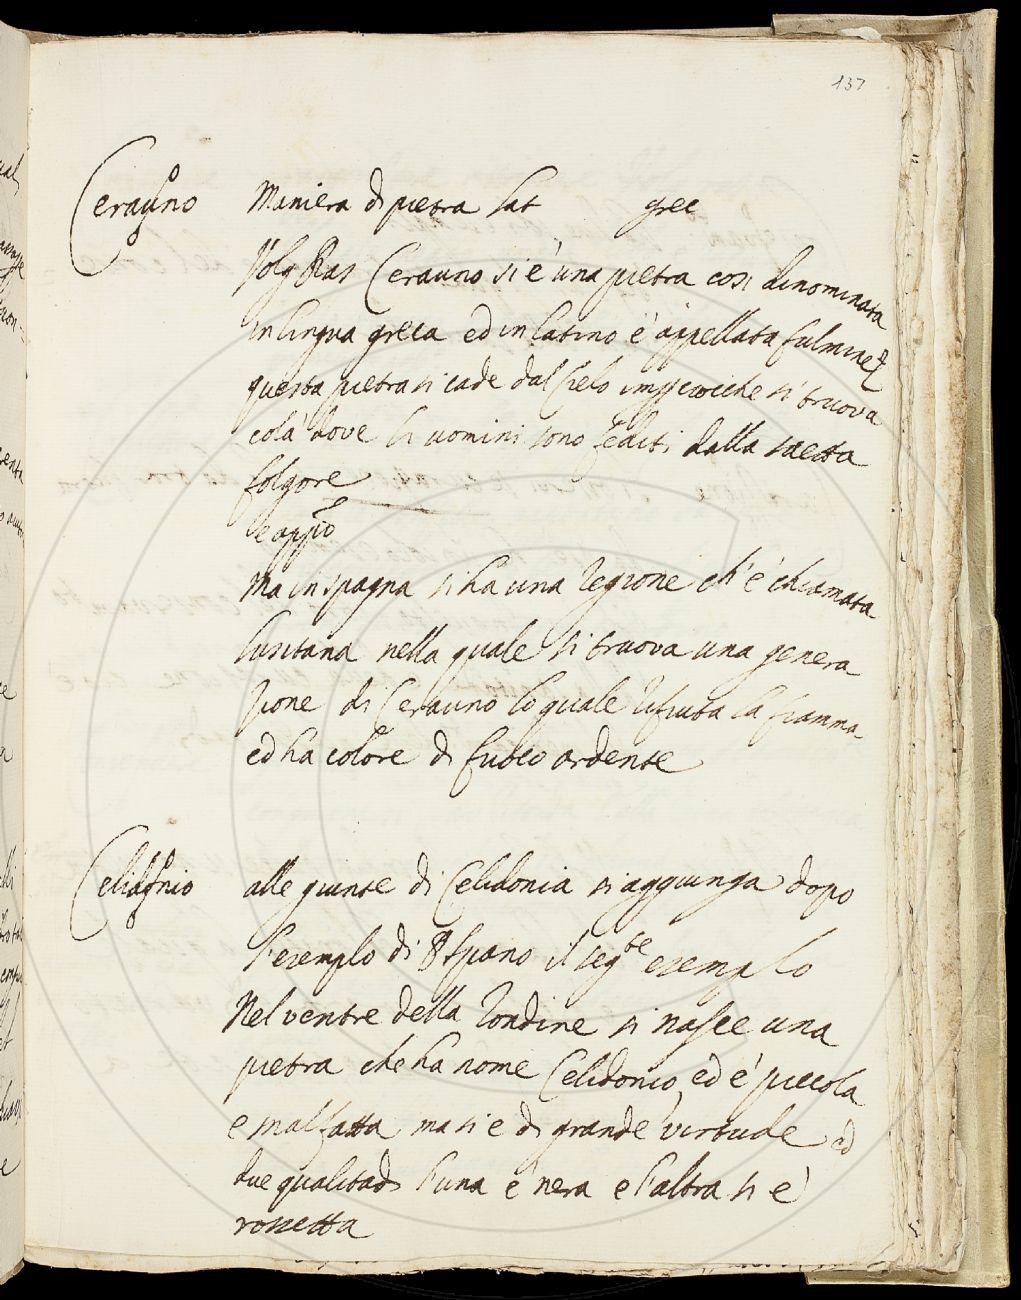 157
Cerauno Maniera di pietra Lat grec
Volg Ras Cerauno si è una pietra cosi dinominata
in lingua greca ed in latino è appellata fulmine
questa pietra si cade dal cielo imperciocche si truova
colà dove li uomini sono fediti dalla saetta
folgore
e app.o
Ma in spagna si ha una regione ch'è chiamata
lusitana nella quale si truova una genera
zione di Cerauno lo quale rifiuta la fiamma
ed ha colore di fuoco ardente
Celidonio alle giunte di Celidonia si aggiunga dopo
l'ezemplo di Ispano il seg.te ezemplo
Nel ventre della rondine si nasce una
pietra che ha nome Celidonio, ed è piccola
e malfatta ma si e di grande virtude ed
due qualitadi l'una è nera e l'altra si è
rossetta